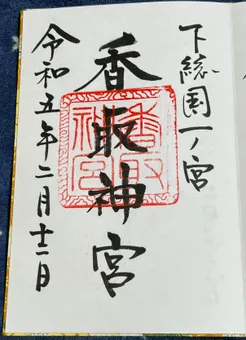 下総国一ノ宮
香取神宮
香取神宮
令和五年二月十二日